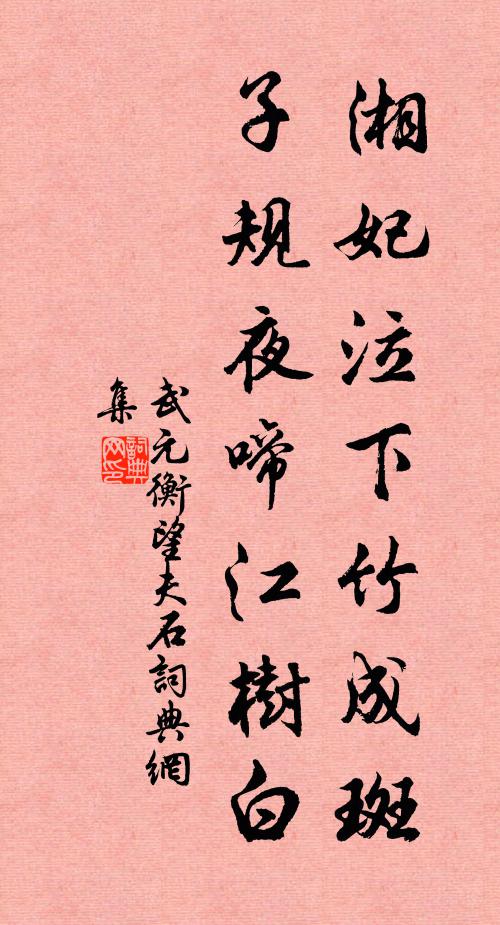 湘妃泣下竹成斑
子規夜啼江樹白
武元衡望夫石詞典網
集
詞典
网印